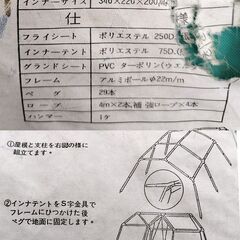 インナーサイズ 340×220×200/
仕
フライシート ポリエステル 250D.
インナーテント ポリエステル 75D.(
グランドシート PVC ターポリン(ウエ
フレーム アルミポールφ22m/m
ペグ 29本
ロープ 4m×2本 補強ロープ×4本
ハンマー 1ケ
①屋根と支柱を右図の様に
組立てます。
②インナテントをS字金具で
フレームにひっつけた後
ペグで地面に固定します。